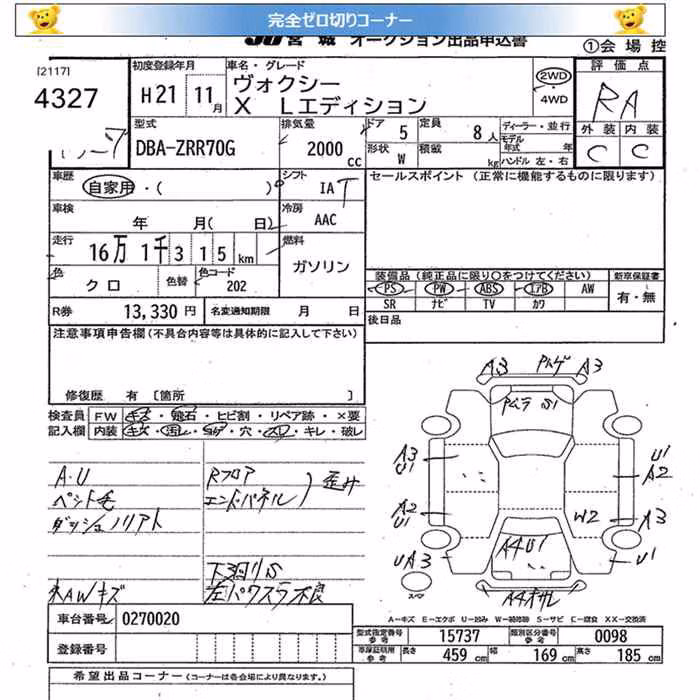 完全ゼロ切りコーナー
JU 宮城 オークション出品申込書
①会場控
[2117]
4327
初度登録年月
H21 11月
車名・グレード
ヴォクシー
X Lエディション
2WD
・4WD
評価点
RA
外装 内装
C C
型式
DBA-ZRR70G
排気量
2000 cc
ドア 5
定員 8人
形状 W
積載 kg
ディーラー・並行
モデル年式 年
ハンドル 左・右
車歴
自家用・( )
シフト
IAT
セールスポイント (正常に機能するものに限ります)
車検
年 月( 日)
冷房
AAC
走行
16万1千315km
燃料
ガソリン
色
クロ
色替
色コード
202
装備品(純正品に限り○をつけてください)
新車保証書
PS PW ABS エアB AW
SR ナビ TV カワ
有・無
R券 13,330円
名変通知期限 月 日
後日品
注意事項申告欄(不具合内容等は具体的に記入して下さい)
修復歴 有 [箇所 ]
検査員 FW キズ・飛石・ヒビ割・リペア跡・×要
記入欄 内装 キズ・汚レ・コゲ・穴・スレ・キレ・破レ
A.U
Rフロア
エンドパネル
歪み
ペット毛
下廻りS
左パワスラ不良
A3 A3
A3
U1
U1
A2
A2
U1
W2 A3
A4U1
UA3 U1
スペア
車台番号 0270020
登録番号
A-キズ E-エクボ U-凹み W-補修跡 S-サビ C-腐食 XX-交換済
型式指定番号 参考 15737
類別区分番号 参考 0098
車庫証明用 参考 長さ 459cm 幅 169cm 高さ 185cm
希望出品コーナー(コーナーは各会場により異なります。)